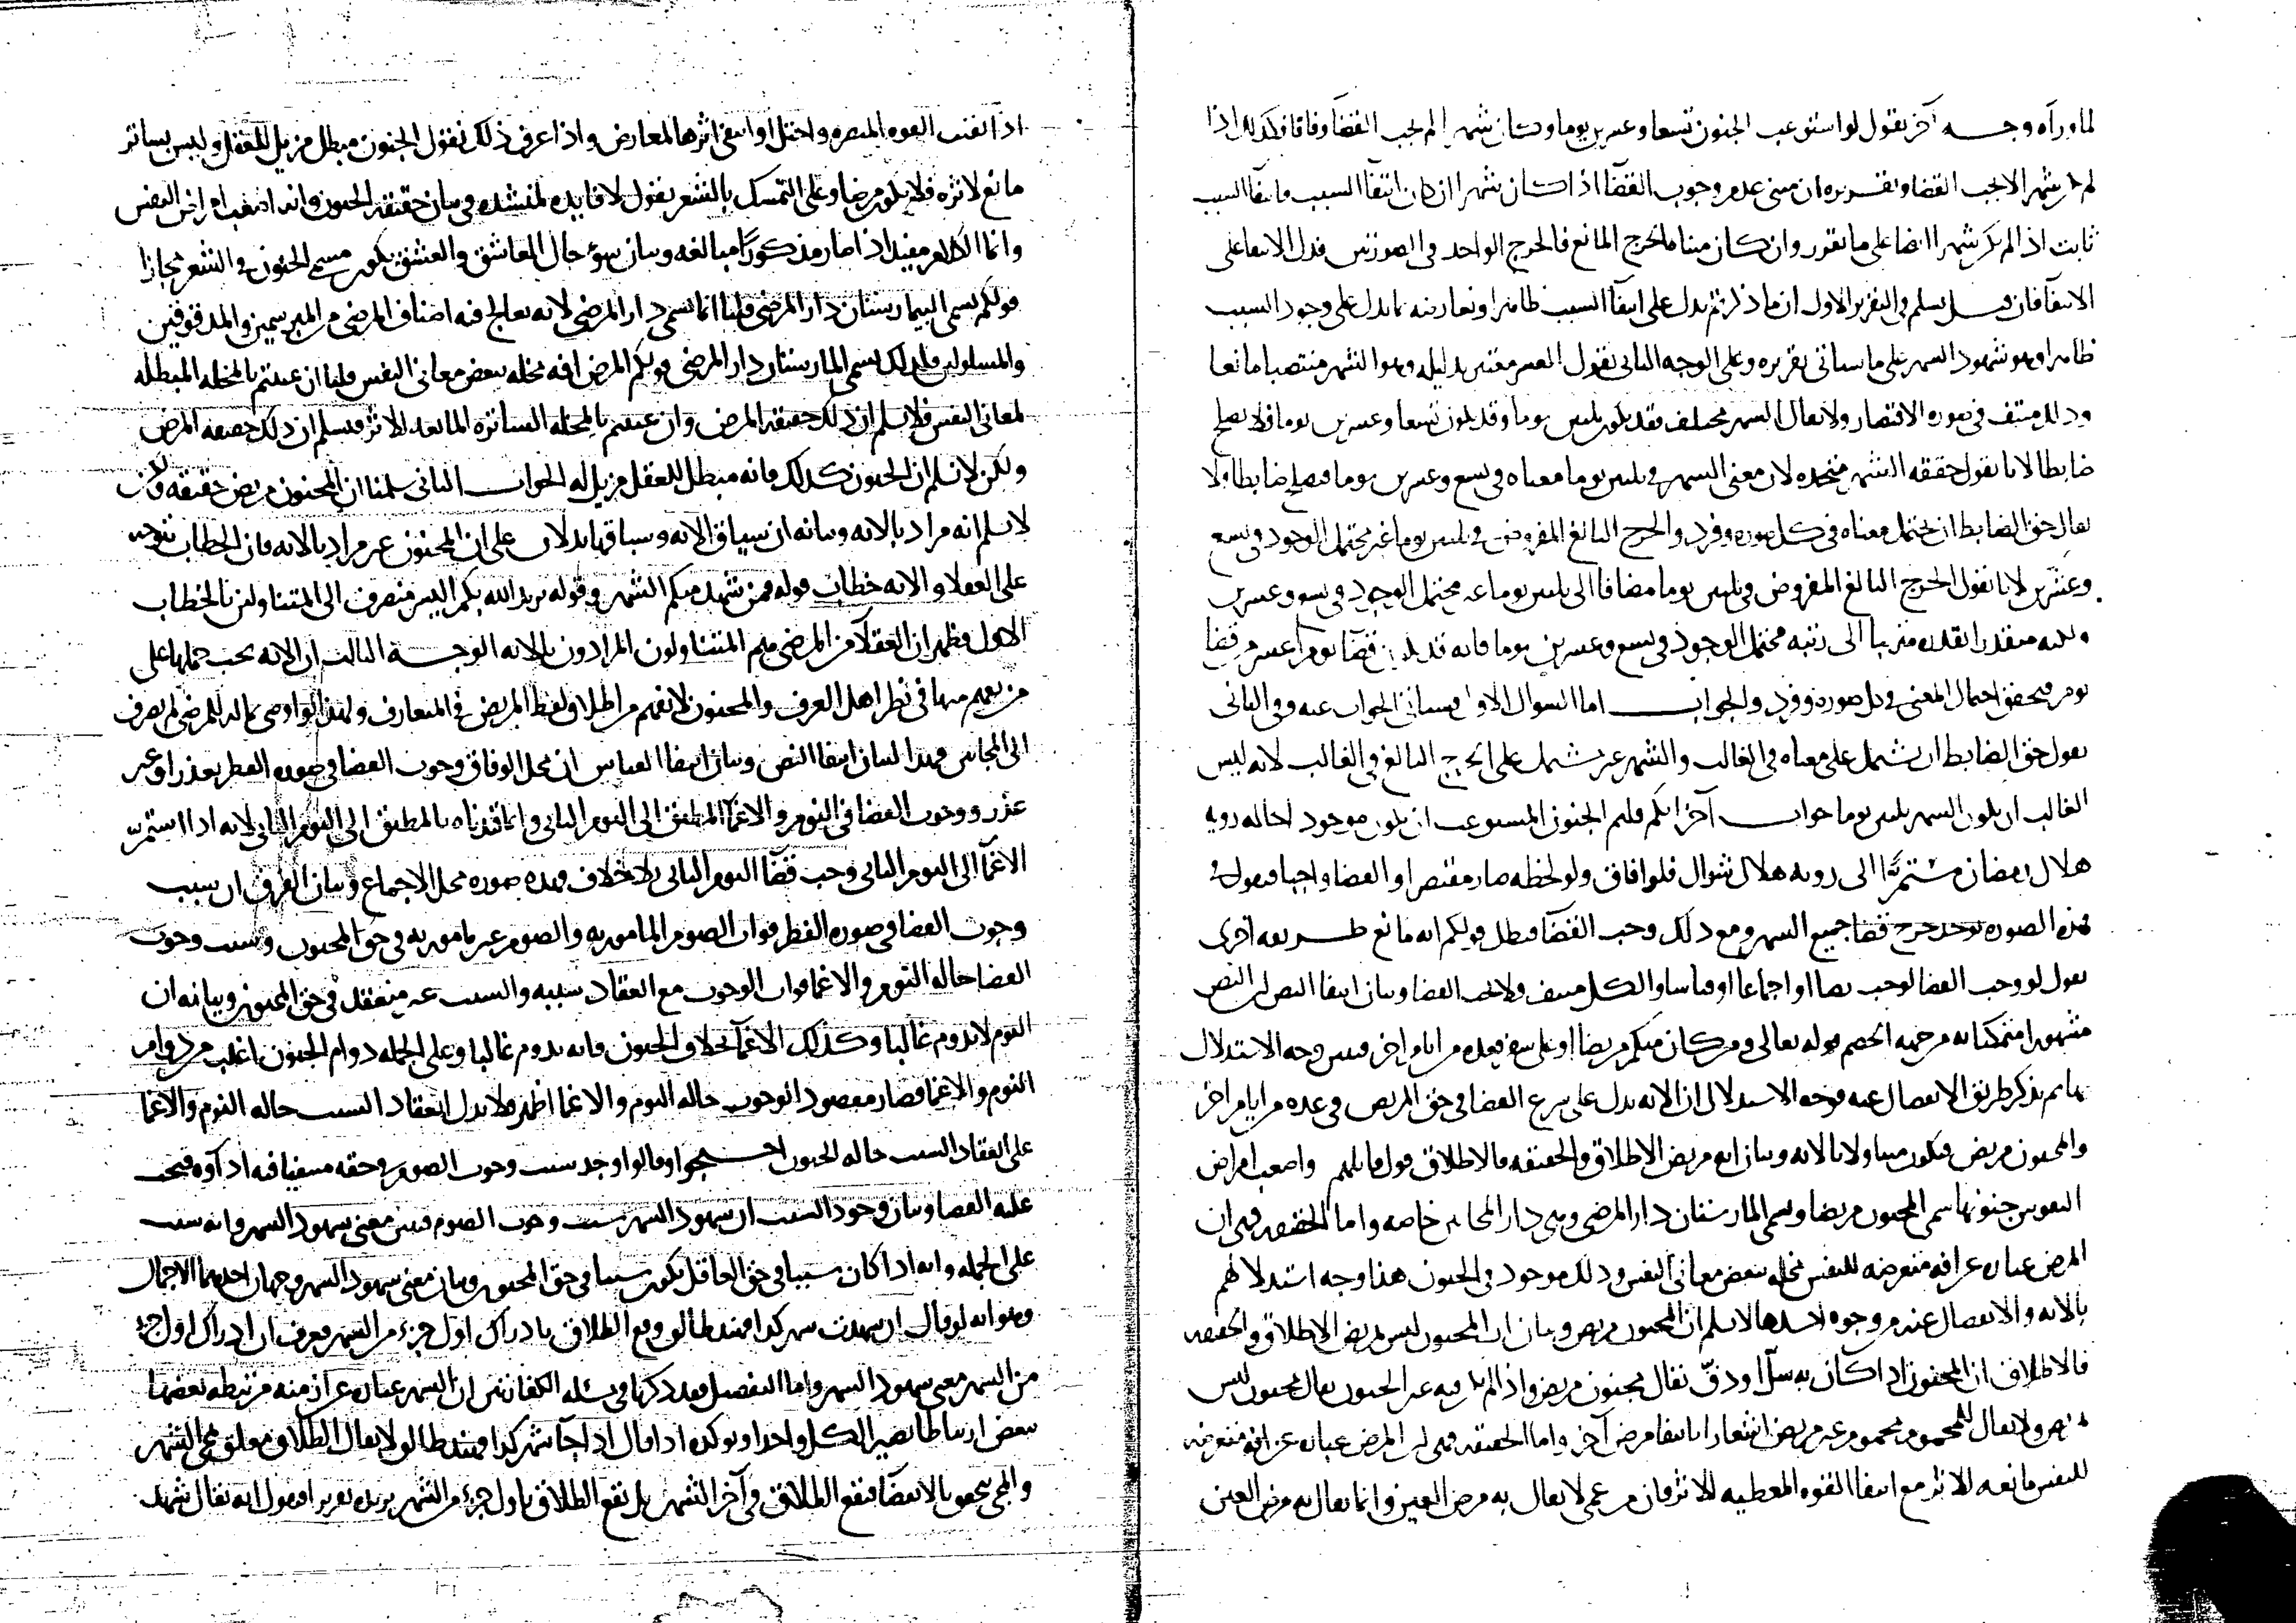 لما وراه وجه آخر نقول لو استوعب الجنون تسعا وعشرين يوما وكان شهرا لم يجب القضا وفاقا فكذلك اذا
لم شهرا لا يجب القضا وتقريره ان مبنى عدم وجوب القضا اذا كان شهرا ان كان انتفا السبب فانتفا السبب
ثابت اذا لم يكن شهرا ايضا على ما تقرر وان كان مبناه الحرج المانع فالحرج الواحد في الصورتين فدل الانتفا على
الانتفا فان قيل نسلم في التقرير الاول ان ما ذكرتم يدل على انتفا السبب ظاهرا وتعارضه ما يدل على وجود السبب
ظاهرا وهو شهود الشهر على ما سياتي تقريره وعلى الوجه الثاني نقول العسر معتبر بدليله وهو الشهر منتصبا مانعا
وذلك منتف في صوره الاقتصار ولا يقال الشهر مختلف فقد يكون ثلثين يوما وقد يكون تسعا وعشرين يوما فلا يصلح
ضابطا لانا نقول حقيقه الشهر متحده لان معنى الشهر في ثلثين يوما معناه في تسع وعشرين يوما فيصلح ضابطا ولا
يقال حق الضابط ان يحتمل معناه في كل صوره وفرد والحرج البالغ المفروض في ثلثين يوما غير محتمل الوجود في تسع
وعشرين لانا نقول الحرج البالغ المفروض في ثلثين يوما مضافا الى ثلثين يوما غير محتمل الوجود في تسع وعشرين
ولكنه متقدرا بقدره مترتبا الى رتبه محتمل الوجود في تسع وعشرين يوما فانه قد قضا يوم اعسر من قضا
يوم فيتحقق احتمال المعنى في كل صوره وفرد والجواب اما السوال الاول فسياتي الجواب عنه وفي الثاني
نقول حق الضابط ان يشتمل على معناه في الغالب والشهر غير مشتمل على الحرج البالغ في الغالب لانه ليس
الغالب ان يكون الشهر ثلثين يوما جواب آخر انكم قلتم الجنون المستوعب ان يكون موجودا حاله رويه
هلال رمضان مستمرا الى رويه هلال شوال فلو افاق ولو لحظه صار مقتصرا والقضا واجبا فنقول في
هذه الصوره يوجد حرج قضا جميع الشهر ومع ذلك وجب القضا فبطل قولكم انه مانع طريقه اخرى
نقول لو وجب القضا لوجب نصا او اجماعا او قياسا والكل منتف فلا يجب القضا وبيان انتفا النص ان النص
مشهورا متمسكا به من جهه الخصم قوله تعالى ومن كان منكم مريضا او على سفر فعده من ايام اخر فنبين وجه الاستدلال
بها ثم نذكر طريق الانفصال عنه فوجه الاستدلال ان الايه تدل على شرع القضا في حق المريض في عده من ايام اخر
والمجنون مريض فيكون متناولا بالايه وبيان انه مريض الاطلاق والحقيقه فالاطلاق قول قائلهم واصعب امراض
النفوس جنونها سمى المجنون مريضا ويسمى المارستان دار المرضى وهي دار المجانين خاصه واما الحقيقه فهي ان
المرض عباره عن افه متعرضه للنفس مخله ببعض معاني النفس وذلك موجود في الجنون هذا وجه استدلالهم
بالايه والانفصال عنه من وجوه احدها لا نسلم ان المجنون مريض وبيان ان المجنون ليس بمريض الاطلاق والحقيقه
فالاطلاق ان المجنون اذا كان به سل او دق يقال مجنون مريض واذا لم يكن فيه غير الجنون يقال مجنون ليس
بمريض ولا يقال للمحموم محموم غير مريض اشعارا بانتفا مرض آخر واما الحقيقه فهي ان المرض عباره عن افه متعرضه
للنفس مانعه للاثر مع انتفا القوه المعطيه للاثر فان من عمي لا يقال به مرض العين وانما يقال به مرض العين
اذا بقيت القوه المبصره واختل او انتفى اثرها لمعارض واذا عرف ذلك نقول الجنون مبطل مزيل للعقل وليس بساتر
مانع لاثره فلا يكون مرضا وعلى التمسك بالشعر نقول لا فايده لمنشده في بيان حقيقه الجنون وانه اصعب امراض النفس
وانما الكلام مفيد اذا صار مذكورا مبالغه وبيان سوء حال العاشق والعشق يكون مسمى الجنون في الشعر مجازا
قولكم يسمى البيمارستان دار المرضى قلنا انما تسمى دار المرضى لانه يعالج فيه اصناف المرضى من المبرسمين والمدقوقين
والمسلولين فلذلك يسمى المارستان دار المرضى قولكم المرض افه مخله ببعض معاني النفس قلنا ان عنيتم بالمخله المبطله
لمعاني النفس فلا نسلم ان ذلك حقيقه المرض وان عنيتم بالمخله الساتره المانعه للاثر فنسلم ان ذلك حقيقه المرض
ولكن لا نسلم ان الجنون كذلك فانه مبطل للعقل مزيل له الجواب الثاني سلمنا ان المجنون مريض حقيقه ولكن
لا نسلم انه مراد بالايه وبيانه ان سياق الايه وسباقها يدلان على ان المجنون غير مراد بالايه فان الخطاب يتوجه
على العقلا والايه خطاب قوله فمن شهد منكم الشهر وقوله يريد الله بكم اليسر منصرف الى المتناولين بالخطاب
الاول فظهر ان العقلا من المرضى هم المتناولون المرادون بالايه الوجه الثالث ان الايه يجب حملها على
من يفهم منها في نظر اهل العرف والمجنون لا يفهم من اطلاق لفظ المريض في المتعارف ولهذا لو اوصى بماله للمرضى لم يصرف
الى المجانين فهذا لبيان انتفا النص وبيان انتفا القياس ان محل الوفاق وجوب القضا في صوره الفطر بعذر او غير
عذر ووجوب القضا في النوم والاغما المطبق الى اليوم الثاني وانما قيدناه بالمطبق الى اليوم الثاني لانه اذا استمر
الاغما الى اليوم الثاني وجب قضا اليوم الثاني بلا خلاف فهذه صوره محل الاجماع وبيان الفرق ان سبب
وجوب القضا في صوره الفطر فوات الصوم المامور به والصوم غير مامور به في حق المجنون وسبب وجوب
القضا حاله النوم والاغما فوات الوجوب مع انعقاد سببه والسبب غير منعقد في حق المجنون وبيانه ان
النوم لا يدوم غالبا وكذلك الاغما بخلاف الجنون فانه يدوم غالبا وعلى الجمله دوام الجنون اغلب من دوام
النوم والاغما فصار مقصود الوجوب حاله النوم والاغما اظهر فلا يدل انعقاد السبب حاله النوم والاغما
على انعقاد السبب حاله الجنون احتجوا وقالوا وجد سبب وجوب الصوم في حقه منتفيا فيه اداوه فيجب
عليه القضا وبيان وجود السبب ان شهود الشهر سبب وجوب الصوم فنبين معنى شهود الشهر وانه سبب
على الجمله وانه اذا كان سببا في حق العاقل يكون سببا في حق المجنون وبيان معنى شهود الشهر وجهان احدهما الاجمال
وهو انه لو قال ان شهدت شهر كذا فهند طالق وقع الطلاق بادراك اول جزء من الشهر فعرف ان ادراك اول جزء
من الشهر معنى شهود الشهر واما التفصيل فقد ذكرنا في مسئله الكفارتين ان الشهر عباره عن ازمنه مرتبطه بعضها
ببعض ارتباطا يصير الكل واحدا ويوكده اذا قال اذا جآ شهر كذا فهند طالق لا يقال الطلاق معلق بمجي الشهر
والمجي يتحقق بالانقضا فيقع الطلاق في آخر الشهر بل يقع الطلاق باول جزء من الشهر يريده تقريرا فنقول انه يقال شهد